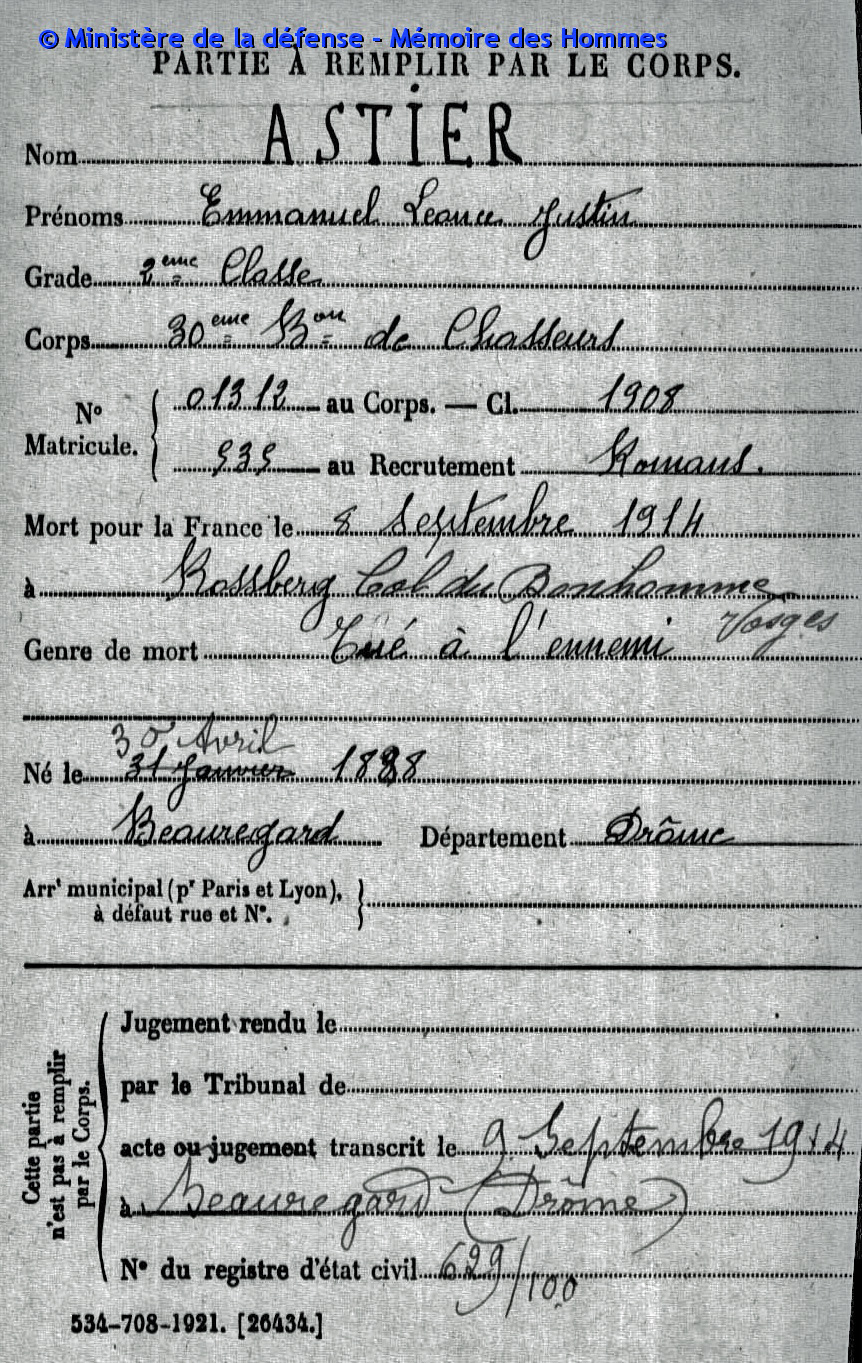 © Ministère de la défense - Mémoire des Hommes
PARTIE À REMPLIR PAR LE CORPS.
Nom ASTIER
Prénoms Emmanuel Léonce Justin
Grade 2eme Classe
Corps 30eme Bon de Chasseurs
No Matricule. { 01312 au Corps. — Cl. 1908
535 au Recrutement Romans.
Mort pour la France le 8 Septembre 1914
à Rossberg Col du Bonhomme
Vosges
Genre de mort Tué à l'ennemi
30 Avril
Né le 31 Janvier 1888
à Beauregard Département Drôme
Arrt municipal (pr Paris et Lyon), }
à défaut rue et No.
Cette partie n'est pas à remplir par le Corps.
Jugement rendu le
par le Tribunal de
acte ou jugement transcrit le 9 Septembre 1914
à Beauregard (Drôme)
No du registre d'état civil 629/100
534-708-1921. [26434.]